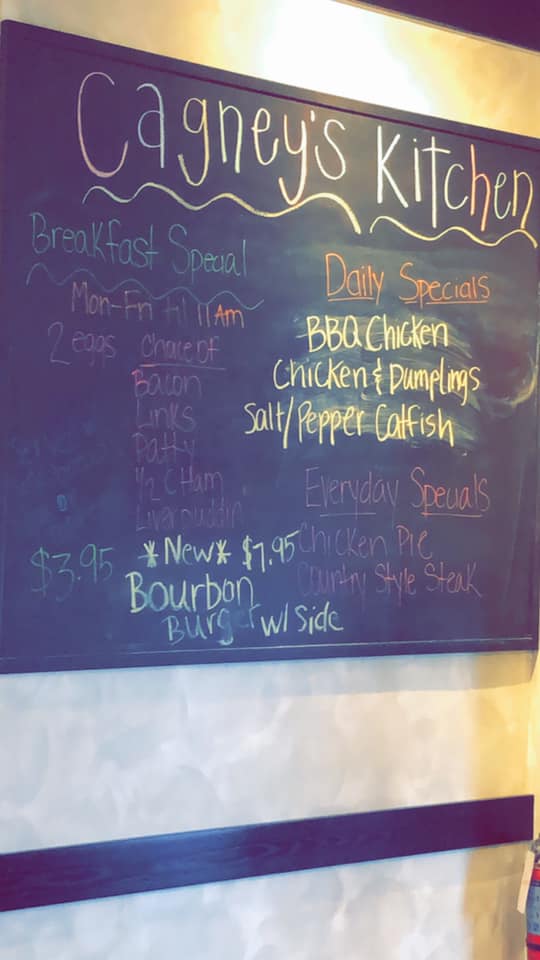 Cagney's Kitchen
Breakfast Special
Mon-Fri til 11 Am
2 eggs Choice of
Bacon
Links
Patty
1/2 C Ham
Liverpuddin
$3.95
Daily Specials
BBQ Chicken
Chicken & Dumplings
Salt/Pepper Catfish
Everyday Specials
Chicken Pie
Country Style Steak
*New* $7.95
Bourbon
Burger w/ Side